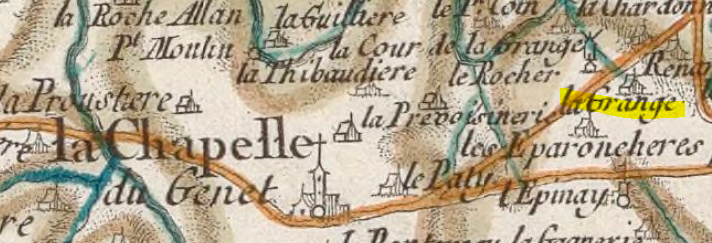 la Roche Allan
la Guilliere
le Pt. Coin
la Chardonn
Pt. Moulin
la Cour de la Grange
la Thibaudiere
le Rocher
Rena
la Proustiere
la Prevoisinerie
la Grange
la Chapelle
du Genet
les Eparoneheres
le Paty
l'Epinay